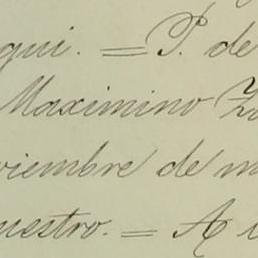 qui. = P. de
Maximino
viembre de m
uestro. = A